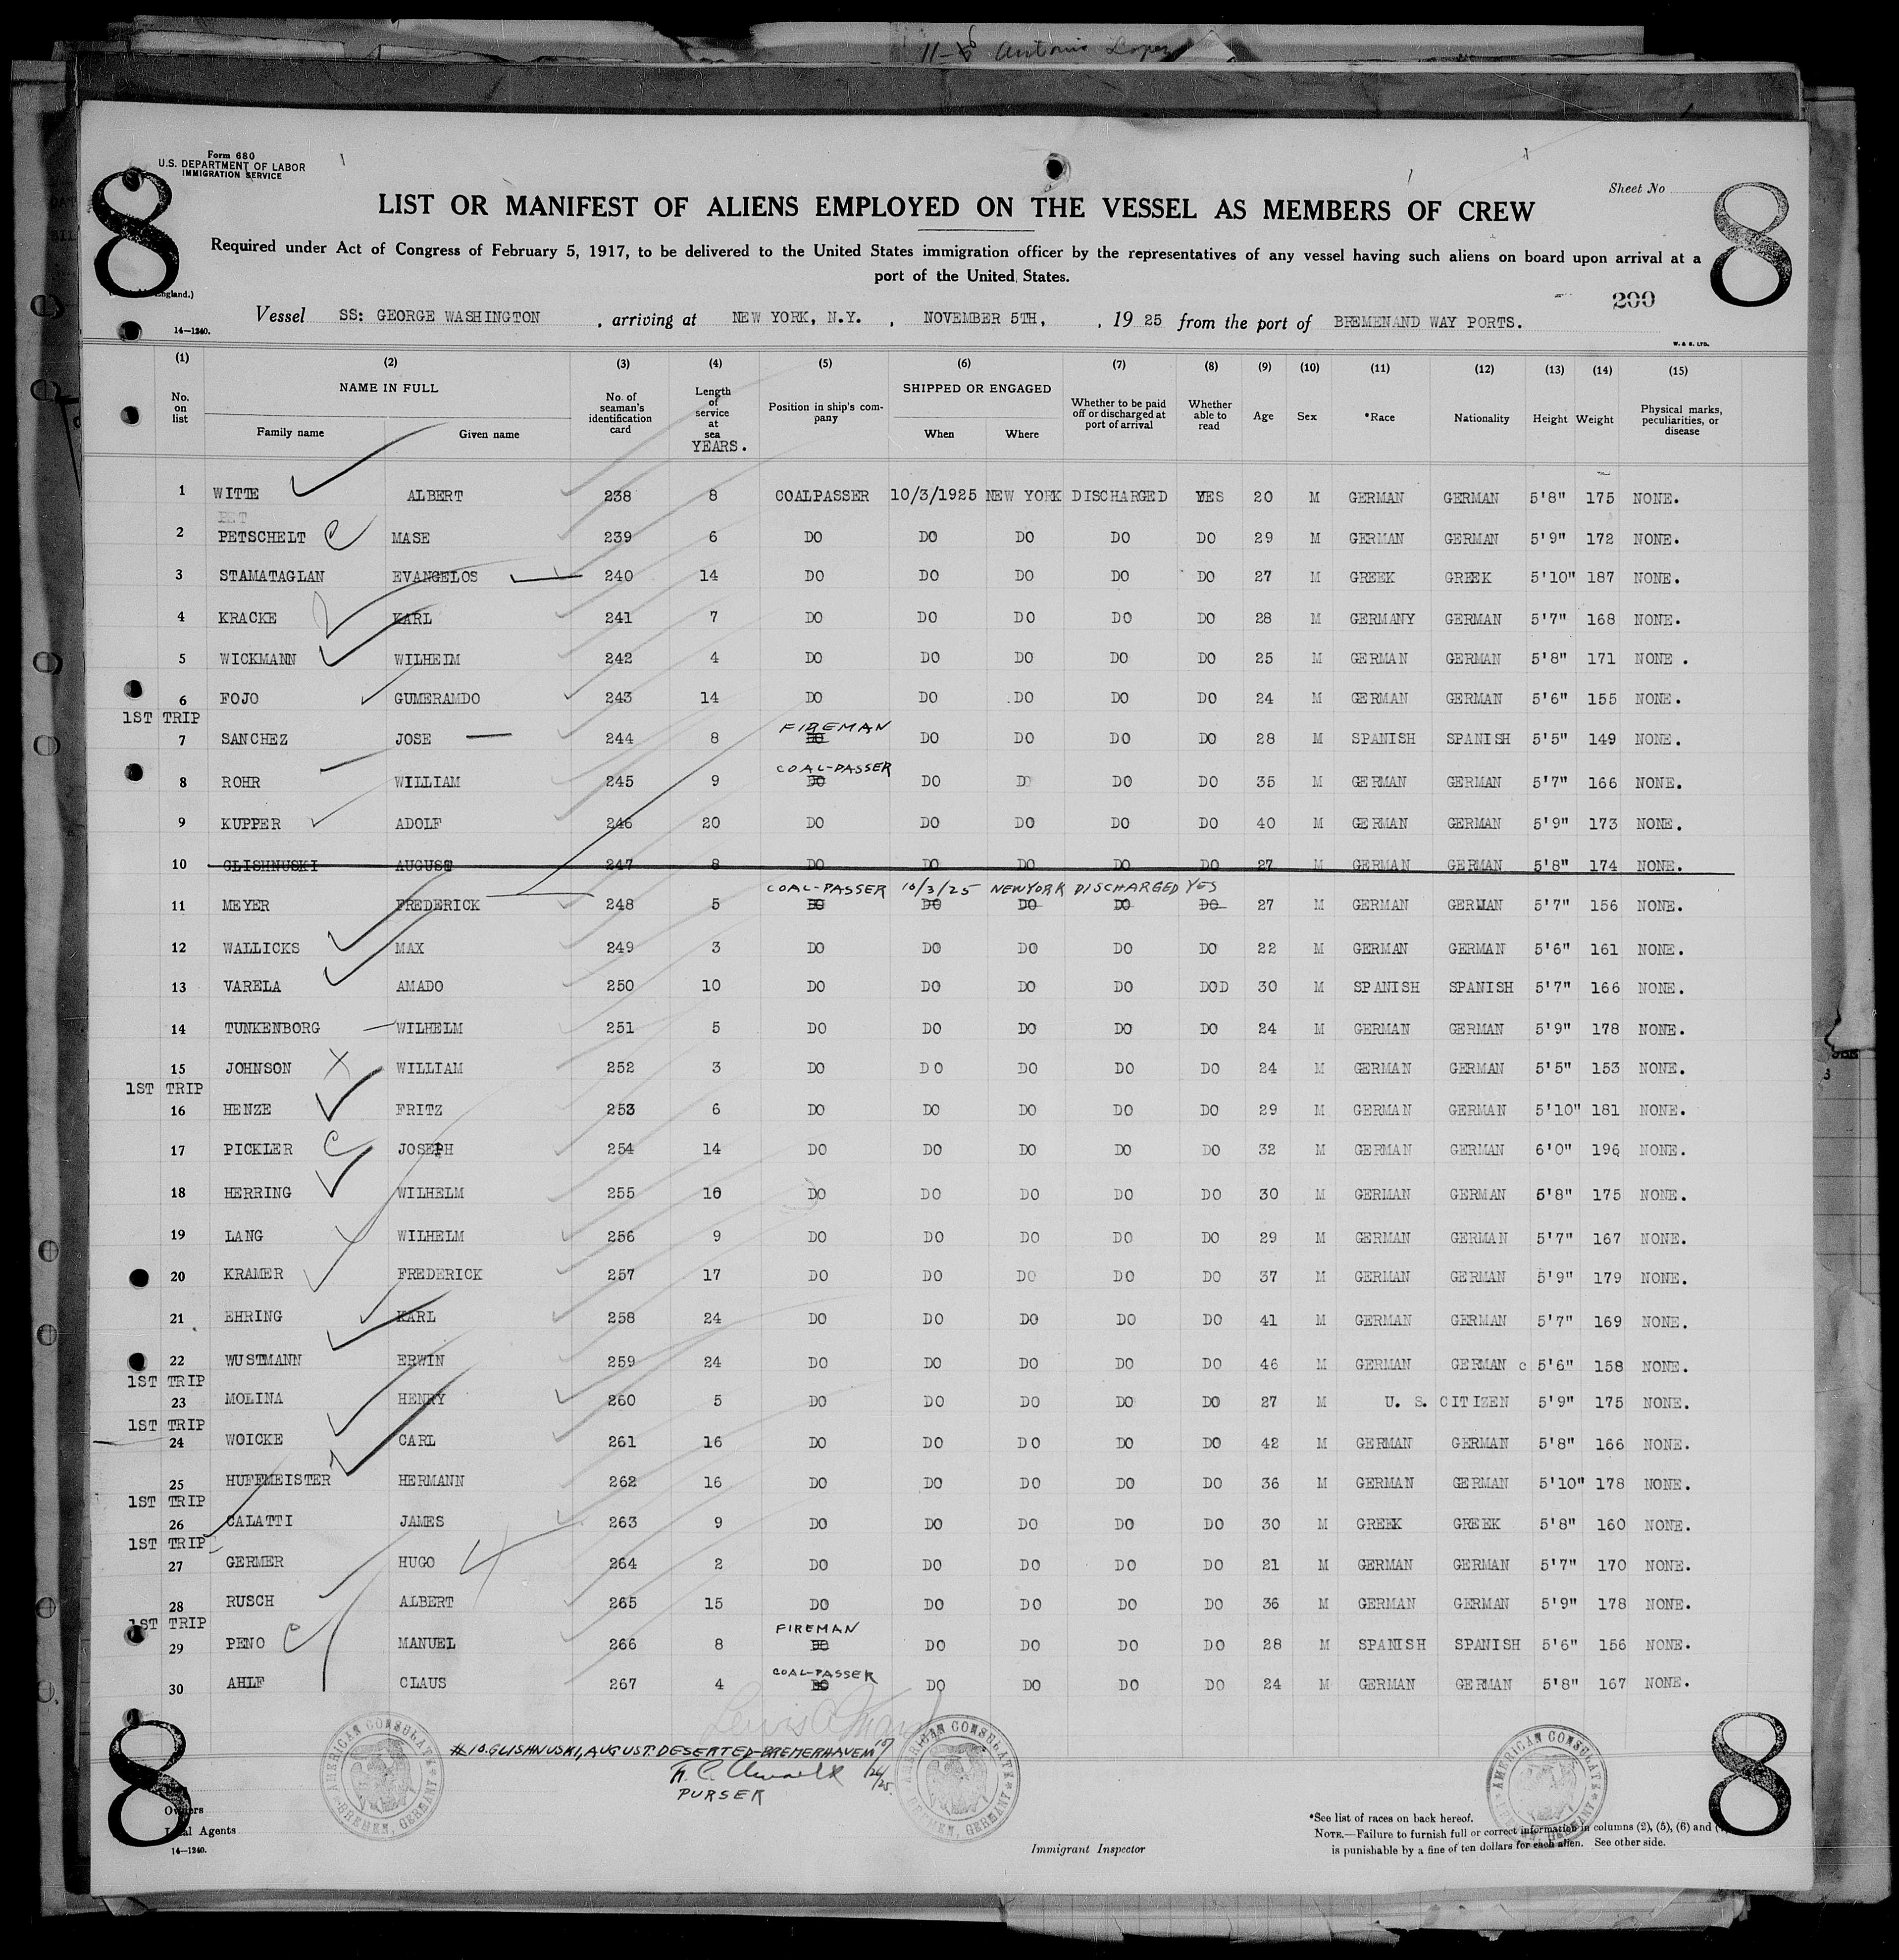 11-8 Antonio Lopez
Form 680
U.S. DEPARTMENT OF LABOR
IMMIGRATION SERVICE
8
8
Sheet No
LIST OR MANIFEST OF ALIENS EMPLOYED ON THE VESSEL AS MEMBERS OF CREW
Required under Act of Congress of February 5, 1917, to be delivered to the United States immigration officer by the representatives of any vessel having such aliens on board upon arrival at a
port of the United States.
England.)
200
14—1240.
Vessel SS: GEORGE WASHINGTON , arriving at NEW YORK, N.Y. , NOVEMBER 5TH, , 19 25 from the port of BREMENAND WAY PORTS.
W. & S. LTD.
(1) (2) (3) (4) (5) (6) (7) (8) (9) (10) (11) (12) (13) (14) (15)
No. on list NAME IN FULL Family name Given name No. of seaman's identification card Length of service at sea YEARS. Position in ship's company SHIPPED OR ENGAGED When Where Whether to be paid off or discharged at port of arrival Whether able to read Age Sex *Race Nationality Height Weight Physical marks, peculiarities, or disease
1 WITTE ALBERT 238 8 COALPASSER 10/3/1925 NEW YORK DISCHARGED YES 20 M GERMAN GERMAN 5'8" 175 NONE.
2 PETSCHELT C MASE 239 6 DO DO DO DO DO 29 M GERMAN GERMAN 5'9" 172 NONE.
3 STAMATAGLAN EVANGELOS 240 14 DO DO DO DO DO 27 M GREEK GREEK 5'10" 187 NONE.
4 KRACKE KARL 241 7 DO DO DO DO DO 28 M GERMANY GERMAN 5'7" 168 NONE.
5 WICKMANN WILHEIM 242 4 DO DO DO DO DO 25 M GERMAN GERMAN 5'8" 171 NONE .
6 FOJO GUMERAMDO 243 14 DO DO DO DO DO 24 M GERMAN GERMAN 5'6" 155 NONE.
1ST TRIP
FIREMAN
7 SANCHEZ JOSE 244 8 DO DO DO DO DO 28 M SPANISH SPANISH 5'5" 149 NONE.
COAL-PASSER
8 ROHR WILLIAM 245 9 DO DO D DO DO 35 M GERMAN GERMAN 5'7" 166 NONE.
9 KUPPER ADOLF 246 20 DO DO DO DO DO 40 M GERMAN GERMAN 5'9" 173 NONE.
10 GLISHNUSKI AUGUST 247 8 DO DO DO DO DO 27 M GERMAN GERMAN 5'8" 174 NONE.
COAL-PASSER 10/3/25 NEWYORK DISCHARGED YES
11 MEYER FREDERICK 248 5 DO DO DO DO DO 27 M GERMAN GERMAN 5'7" 156 NONE.
12 WALLICKS MAX 249 3 DO DO DO DO DO 22 M GERMAN GERMAN 5'6" 161 NONE.
13 VARELA AMADO 250 10 DO DO DO DO DOD 30 M SPANISH SPANISH 5'7" 166 NONE.
14 TUNKENBORG WILHELM 251 5 DO DO DO DO DO 24 M GERMAN GERMAN 5'9" 178 NONE.
15 JOHNSON X WILLIAM 252 3 DO DO DO DO DO 24 M GERMAN GERMAN 5'5" 153 NONE.
1ST TRIP
16 HENZE FRITZ 253 6 DO DO DO DO DO 29 M GERMAN GERMAN 5'10" 181 NONE.
17 PICKLER C JOSEPH 254 14 DO DO DO DO DO 32 M GERMAN GERMAN 6'0" 196 NONE.
18 HERRING WILHELM 255 10 DO DO DO DO DO 30 M GERMAN GERMAN 5'8" 175 NONE.
19 LANG WILHELM 256 9 DO DO DO DO DO 29 M GERMAN GERMAN 5'7" 167 NONE.
20 KRAMER FREDERICK 257 17 DO DO DO DO DO 37 M GERMAN GERMAN 5'9" 179 NONE.
21 EHRING KARL 258 24 DO DO DO DO DO 41 M GERMAN GERMAN 5'7" 169 NONE.
22 WUSTMANN ERWIN 259 24 DO DO DO DO DO 46 M GERMAN GERMAN c 5'6" 158 NONE.
1ST TRIP
23 MOLINA HENRY 260 5 DO DO DO DO DO 27 M U. S. CITIZEN 5'9" 175 NONE.
1ST TRIP
24 WOICKE CARL 261 16 DO DO DO DO DO 42 M GERMAN GERMAN 5'8" 166 NONE.
25 HUFFMEISTER HERMANN 262 16 DO DO DO DO DO 36 M GERMAN GERMAN 5'10" 178 NONE.
1ST TRIP
26 CALATTI JAMES 263 9 DO DO DO DO DO 30 M GREEK GREEK 5'8" 160 NONE.
1ST TRIP
27 GERMER HUGO 264 2 DO DO DO DO DO 21 M GERMAN GERMAN 5'7" 170 NONE.
28 RUSCH ALBERT 265 15 DO DO DO DO DO 36 M GERMAN GERMAN 5'9" 178 NONE.
1ST TRIP
FIREMAN
29 PENO C MANUEL 266 8 DO DO DO DO DO 28 M SPANISH SPANISH 5'6" 156 NONE.
COAL-PASSER
30 AHLF CLAUS 267 4 DO DO DO DO DO 24 M GERMAN GERMAN 5'8" 167 NONE.
#10. GLISHNUSKI, AUGUST. DESERTED-BREMERHAVEN 10/26/25.
PURSER
AMERICAN CONSULATE BREMEN, GERMANY
AMERICAN CONSULATE BREMEN, GERMANY
AMERICAN CONSULATE BREMEN, GERMANY
8
8
Owners
Local Agents
14—1240.
Immigrant Inspector
*See list of races on back hereof.
NOTE.—Failure to furnish full or correct information in columns (2), (5), (6) and
is punishable by a fine of ten dollars for each alien. See other side.